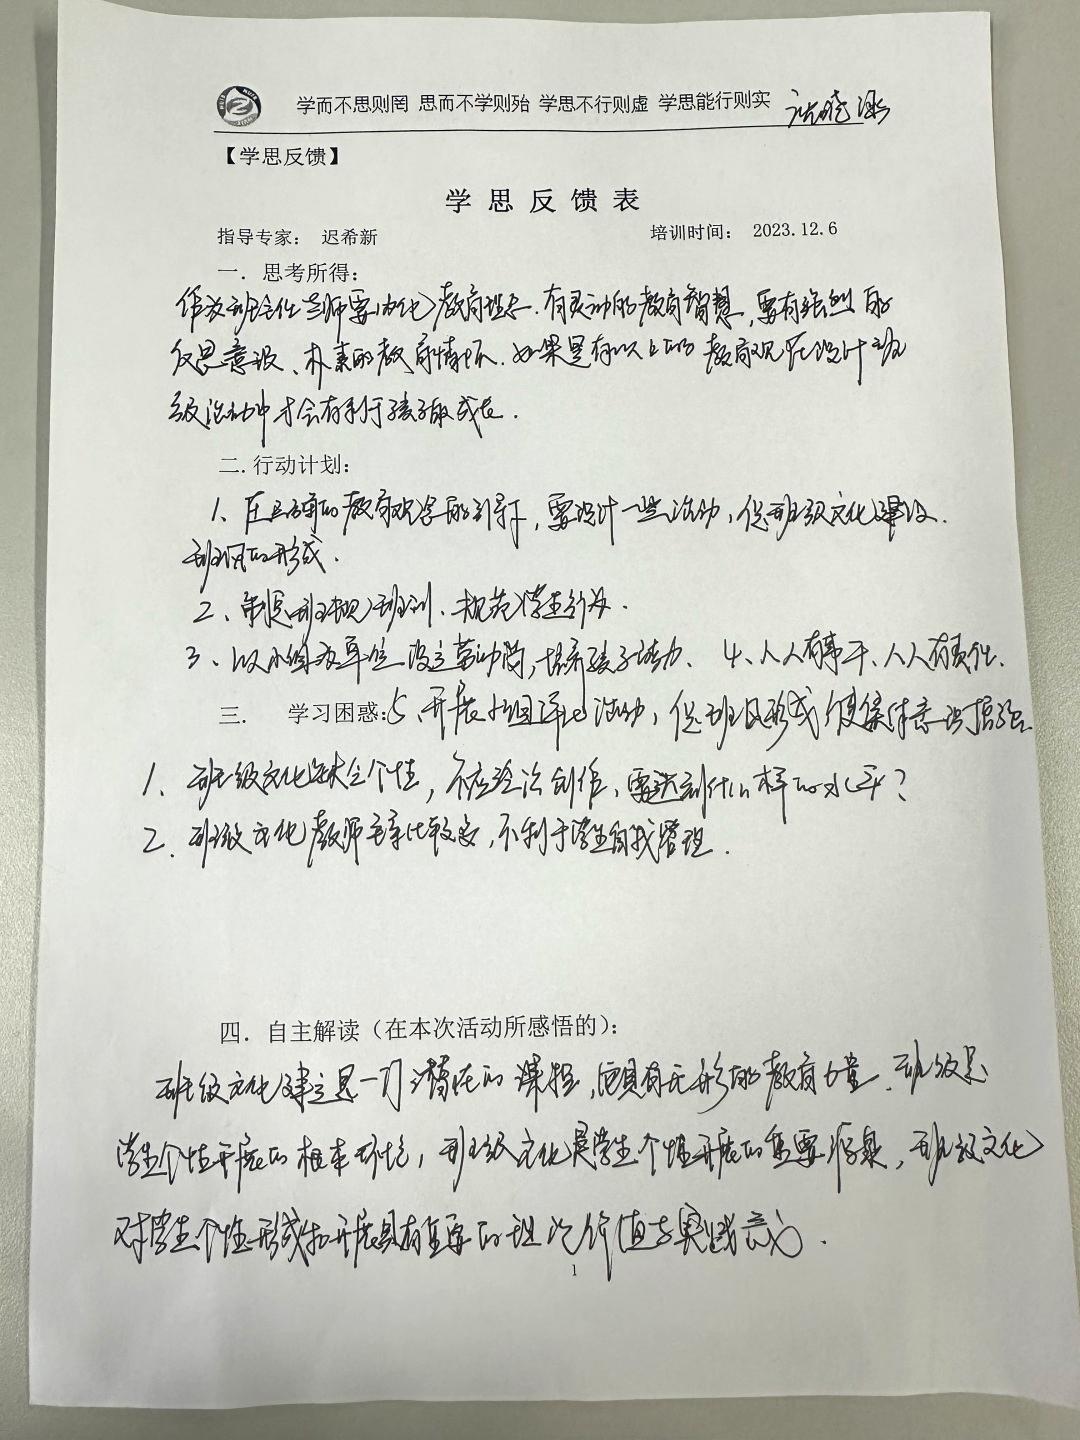 学而不思则罔 思而不学则殆 学思不行则虚 学思能行则实
【学思反馈】
学 思 反 馈 表
指导专家： 迟希新 培训时间： 2023.12.6
一．思考所得：
作为班主任老师要内化教育理念．有灵动的教育智慧，要有强烈的
反思意识、朴素的教育情怀．如果是有以上的教育观
级活动中才会有利于孩子的成长．
二．行动计划：
1、在的教育观念的引导下，要设计一些活动，促班级文化建设．
班风的形成．
2、制定班规班训、规范学生行为．
3、以小组为单位设立劳动岗，培养孩子活动． 4、人人有事干、人人有责任．
三． 学习困惑：5、开展小组活动，促班风形成使集体意识增强
1．班级文化个性，创作、要达到什么样的水平？
2．班级文化教师主宰比较多，不利于学生自我管理．
四．自主解读（在本次活动所感悟的）：
班级文化建立是一门潜在的课程，它具有无形的教育力量．班级是
学生个性开展的根本环境，班级文化是学生个性开展的重要源泉，班级文化
对学生个性形成和开展具有重要的理论价值与实践意义．
1